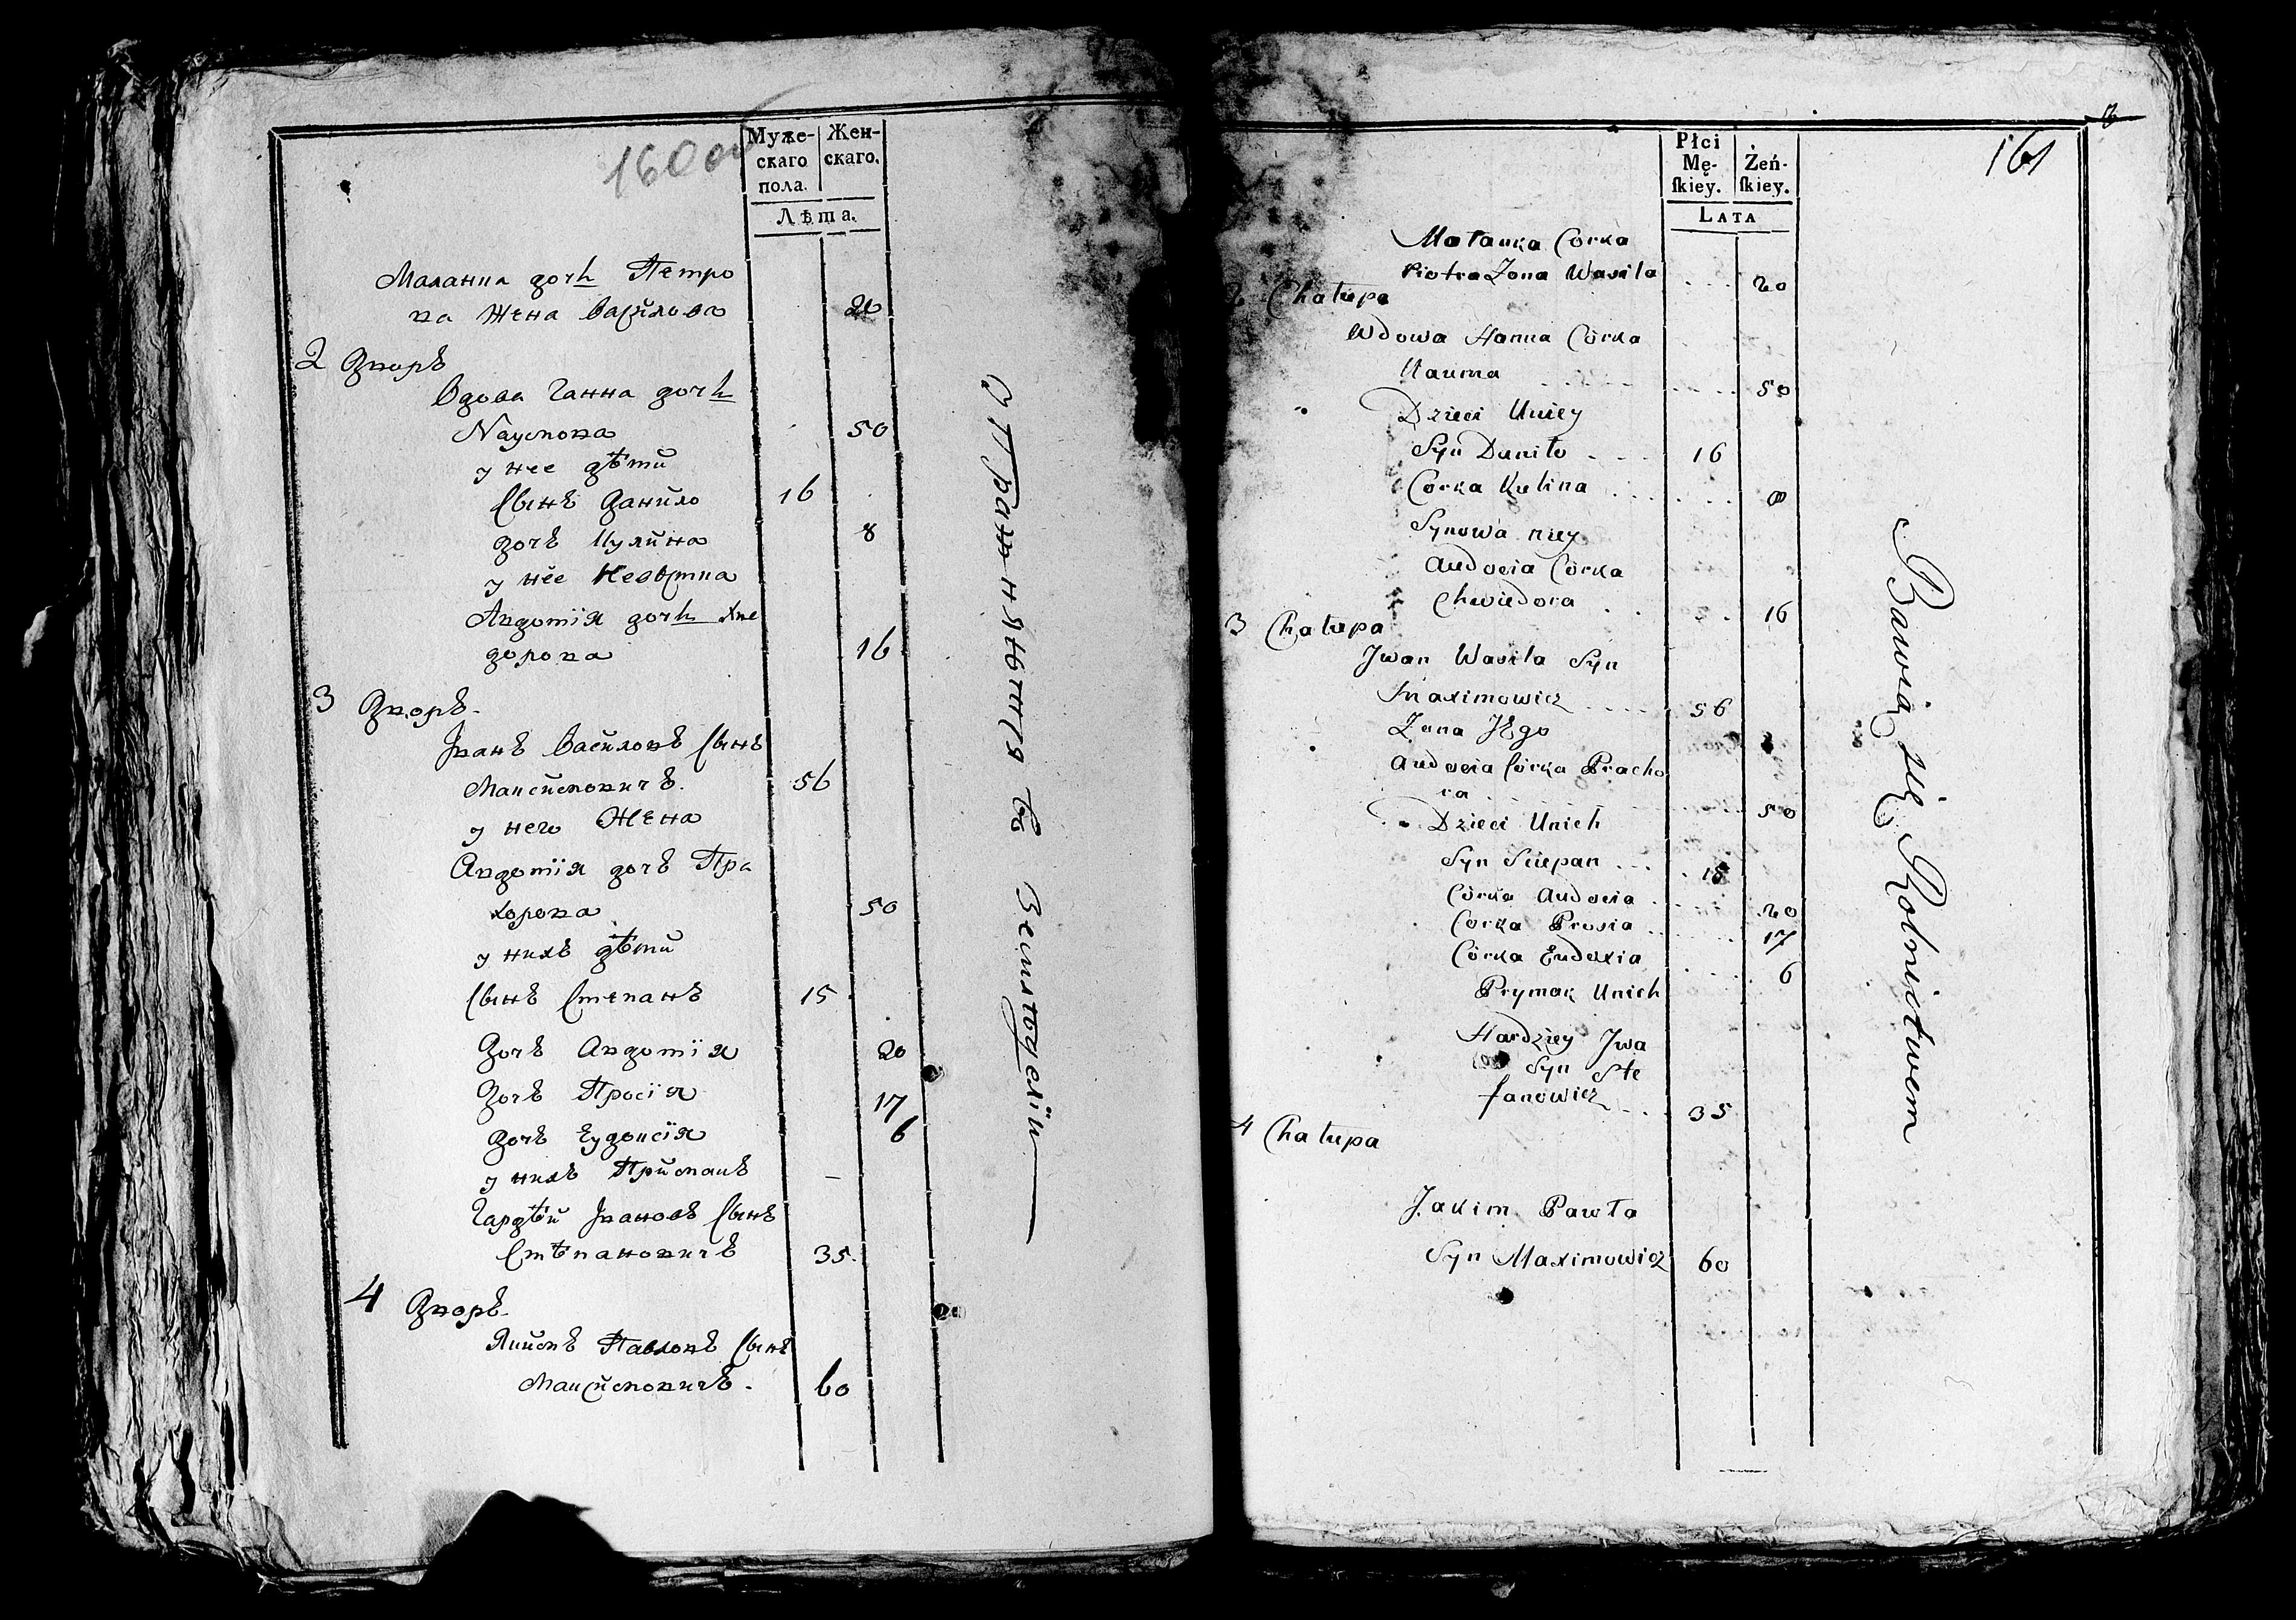 160 об
Муже-
скаго
пола.
Жен-
скаго.
Лѣта.
Маланка дочь Петро
ва Жена Василова 20
2 Дворъ
Вдова Ганна дочь
Наумова 50
у нее дѣти
Сынъ Данило 16
дочъ Кулина 8
у нее Невѣстка
Авдотія дочь Хве
дорова 16
3 Дворъ
Іванъ Василовъ Сынъ
Максимовичъ. 56
у него Жена
Авдотія дочъ Пра
хорова 50
у нихъ дѣти
Сынъ Степанъ 15
Дочъ Авдотія 20
Дочъ Просія 17
дочъ Еудоксія 6
у нихъ Примакъ
Гардѣй Івановъ Сынъ
Стѣпановичъ 35.
4 Дворъ
Якимъ Павловъ Сынъ
Максимовичъ. 60
въ Земледелїи
161
Płci
Mę-
ſkiey.
Żeń-
ſkiey.
LATA
Małanka Corka
Piotra Zona Wasila 20
2 Chałupa
Wdowa Hanna Córka
Nauma 50
Dzieci Uniey
Syn Daniło 16
Corka Kulina 8
Synowa niey
Audocia Córka
Chwiedora 16
3 Chałupa
Jwan Wasila Syn
Maximowicz 56
Zona JEgo
Audocia Córka Pracho
ra 50
Dzieci Unich
Syn Sciepan 15
Córka Audocia 20
Corka Prosia 17
Córka Eudoxia 6
Prymak Unich
Hardziey Jwa
Syn Ste
fanowicz 35
4 Chałupa
Jakim Pawła
Syn Maximowicz 60
Bawią się Rolnictwem